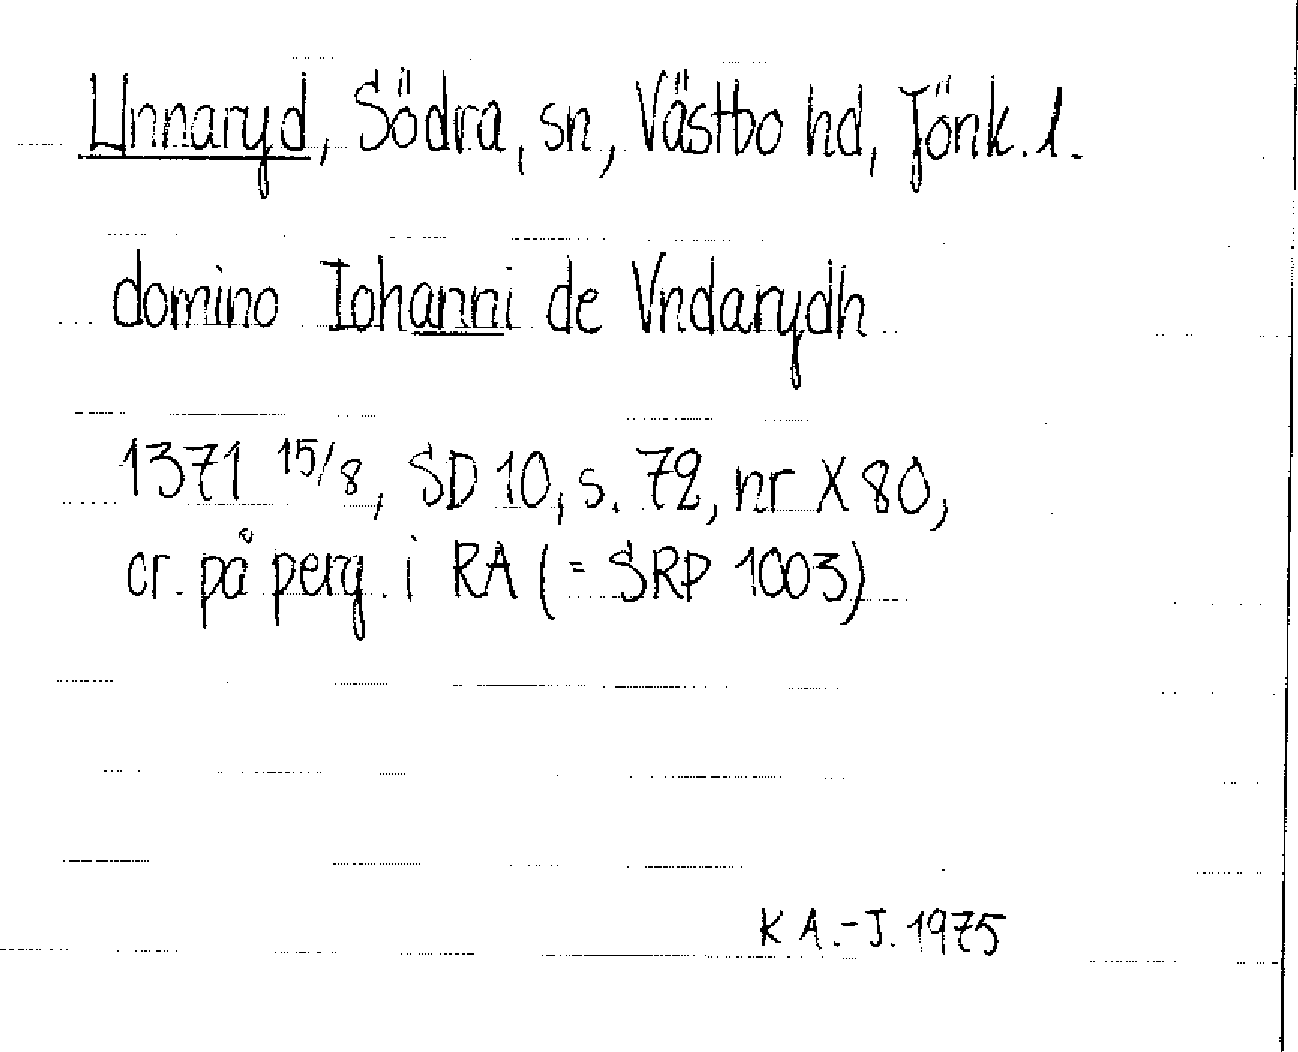 Unnaryd, Södra, sn, Västbo hd, Jönk. l.
domino Iohanni de Vndarydh
1371 15/8, SD 10, s. 72, nr X 80,
or. på perg. i RA (= SRP 1003)
K A.-J. 1975